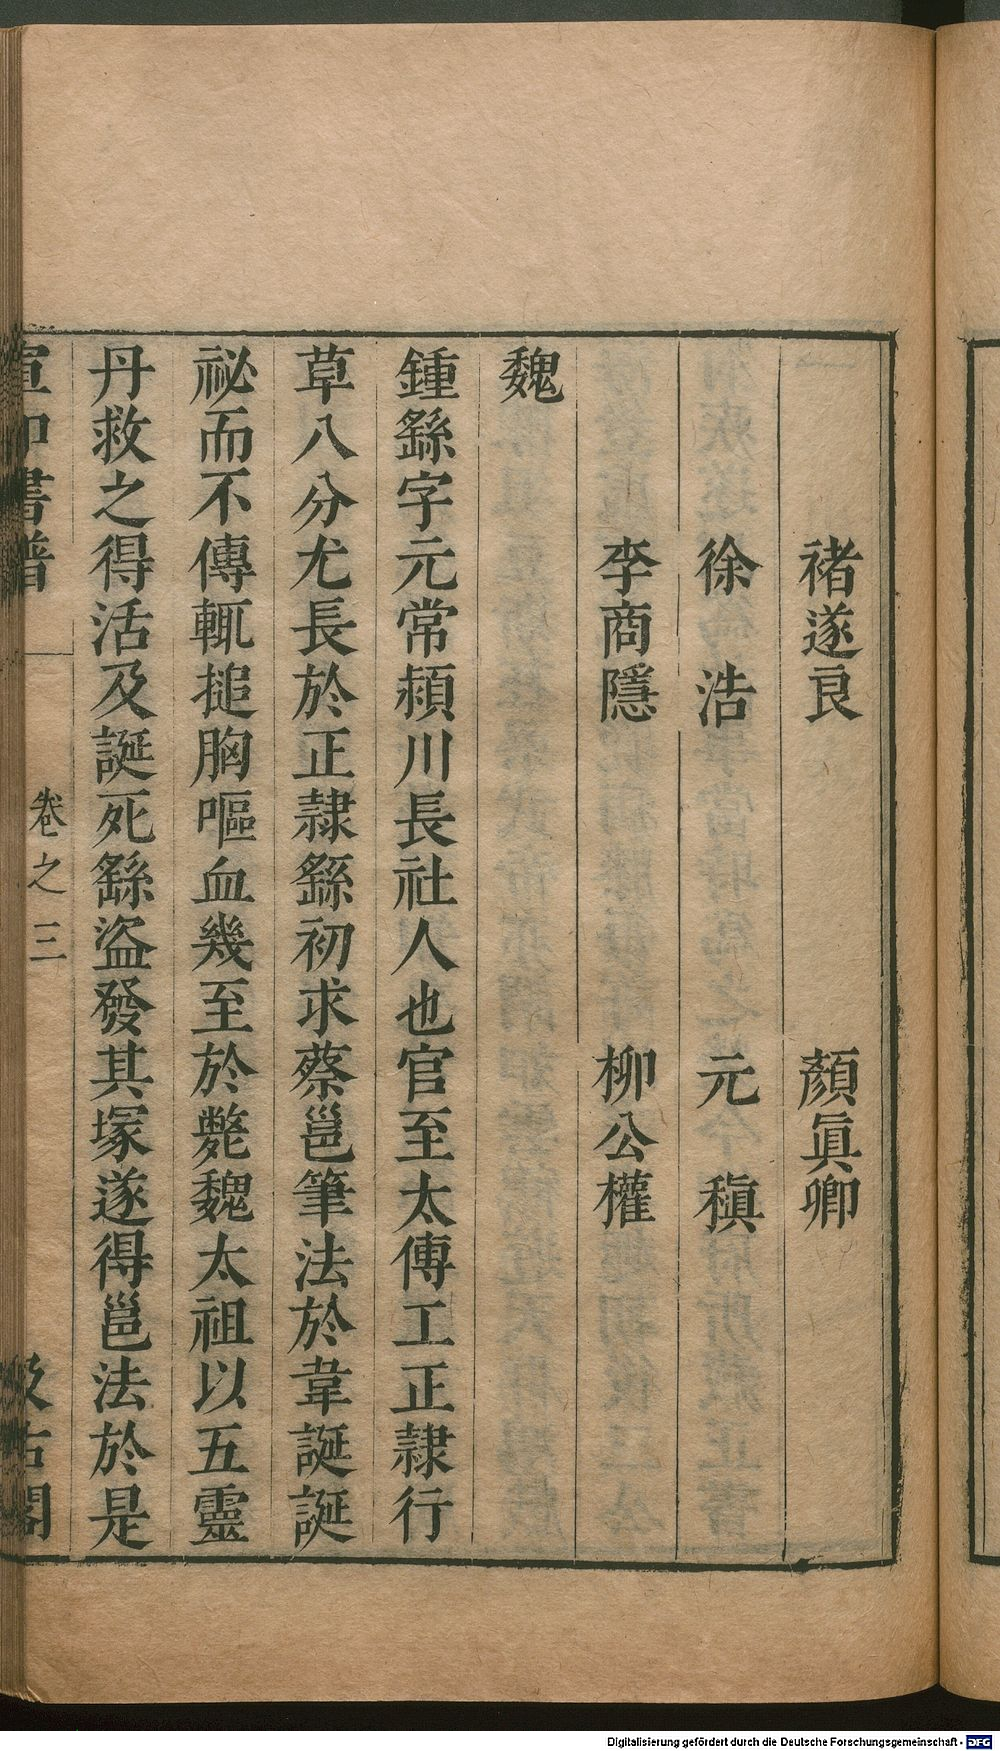 褚遂良 顏眞卿
徐 浩 元 稹
李商隱 柳公權
魏
鍾繇字元常潁川長社人也官至太傅工正隷行
草八分尤長於正隷繇初求蔡邕筆法於韋誕誕
祕而不傳輒搥胸嘔血幾至於斃魏太祖以五靈
丹救之得活及誕死繇盜發其塚遂得邕法於是
宣和書譜 卷之三 汲古閣
Digitalisierung gefördert durch die Deutsche Forschungsgemeinschaft - DFG